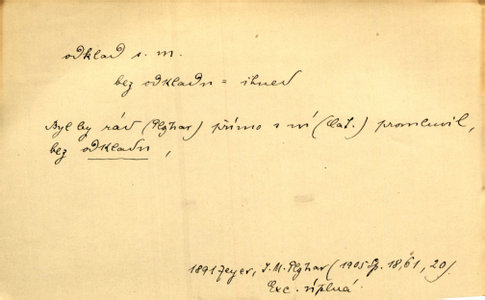 odklad s. m.
bez odkladu = ihned
Byl by rád (Plojhar) přímo s ní (Cat.) promluvil,
bez odkladu,
1891 Zeyer, J. M. Plojhar (1905 Sp. 18, 61, 20)
Exc. úplná.